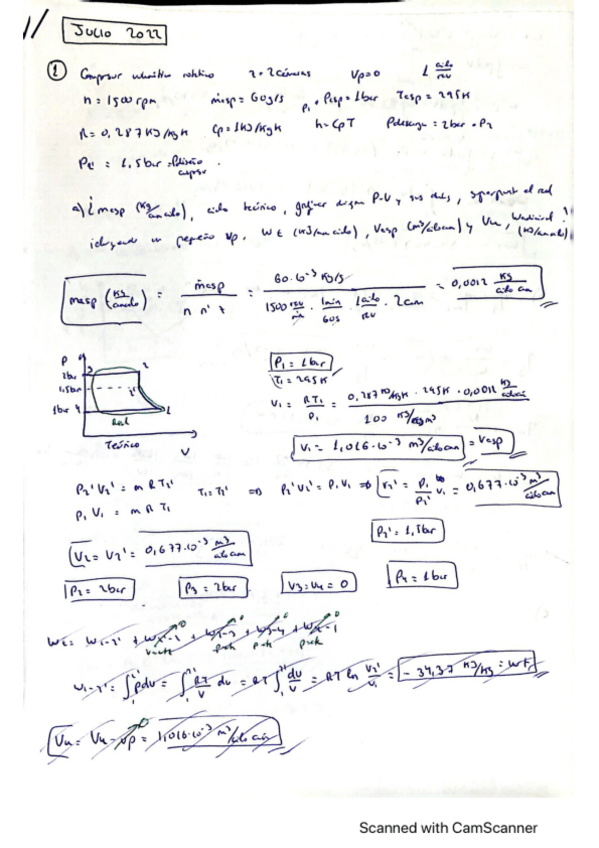 1/ JULIO 2022
① Compresor volumétrico rotativo z = 2 cámaras Vp=0 1 ciclo/rev
n = 1500 rpm ṁasp = 60g/s P1 = Pasp = 1bar Tasp = 295K
R = 0,287 KJ/KgK Cp = 1KJ/KgK h = CpT Pdescarga = 2bar = P2
P2' = 1,5bar
a) ¿masp (Kg/cam ciclo), ciclo teórico, P-V y , el real
un pequeño Vp. Wt (KJ/cam ciclo), Vasp (m³/ciclo cam) y Vu,
masp (Kg/cam ciclo) = ṁasp / n n' z = 60·10⁻³ Kg/s / 1500 rev/min · 1min/60s · 1ciclo/rev · 2cam = 0,0012 Kg/ciclo cam
P V
2bar 3 2
1,5bar 2'
1bar 4 1
Real
Teórico
P1 = 1bar
T1 = 295K
V1 = RT1/P1 = 0,287 KJ/KgK · 295K · 0,0012 Kg/ciclo / 100
V1 = 1,016·10⁻³ m³/ciclo cam = Vasp
P2' V2' = m R T2'
P1 V1 = m R T1
T1 = T2' ⇒ P2' V2' = P1 V1 ⇒ V2' = P1/P2' V1 = 0,677·10⁻³ m³/ciclo cam
P2' = 1,5bar
V2 = V2' = 0,677·10⁻³ m³/ciclo cam
P2 = 2bar P3 = 2bar V3 = V4 = 0 P4 = 1bar
Wt = W1-2' + W2'-2 + W2-3 + W3-4 + W4-1
W1-2' = ∫ pdv = ∫ RT/V dv = RT ∫ dv/V = RT ln V2'/V1 = -34,37 KJ/Kg = Wt
Vu = V4 - Vp = 1,016·10⁻³ m³/ciclo cam
Scanned with CamScanner